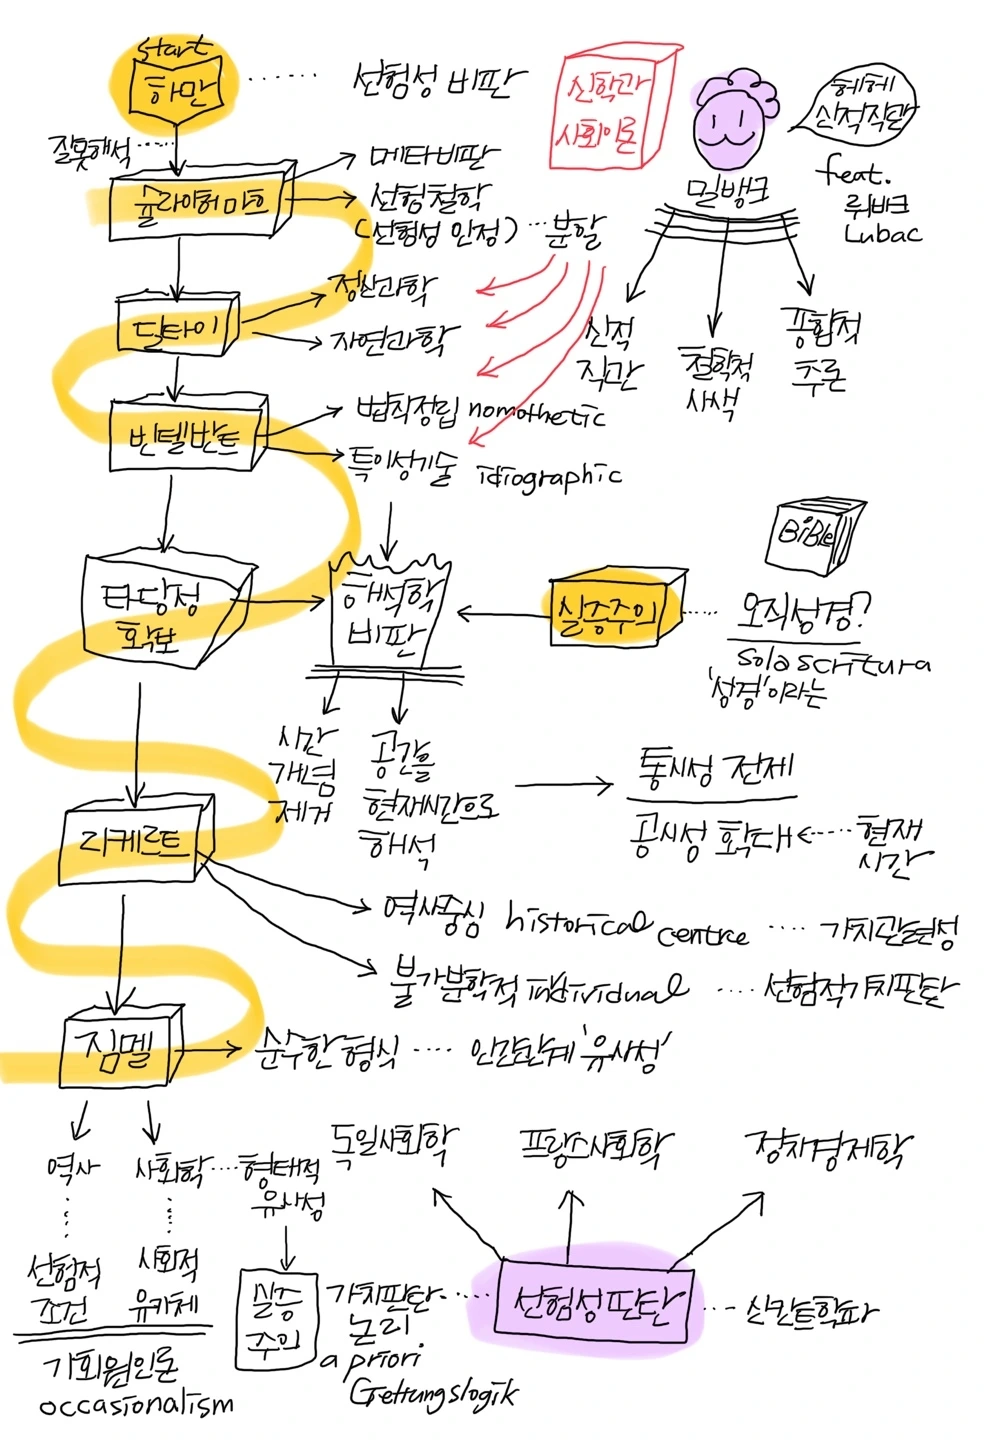 start
하만
선험성 비판
신학과
사회이론
헤헤
신적직관
잘못해석
슐라이허마흐
메타비판
선험철학
(선험성 인정)
분할
밀뱅크
feat.
뤼바크
Lubac
딜타이
정신과학
자연과학
신적
직관
철학적
사색
풍합적
추론
빈텔반트
법칙정립 nomothetic
특이성기술 idiographic
타당정
확보
해석학
비판
실증주의
BiBle
오직성경?
sola scritura
'성경'이라는
시간
개념
제거
공간을
현재시간으로
해석
통시성 전제
공시성 확대
현재
시간
리케르트
역사중심 historical centre
가치관현성
불가분학적 individual
선험적가치판단
짐멜
순수한 형식
인간관계 '유사성'
역사
사회학
형태적
유사성
선험적
조건
사회적
유기체
기회원인론
occasionalism
실증
주의
독일사회학
프랑스사회학
정치경제학
가치판단
논리
a priori
Geltungslogik
선험성판단
신칸트학파